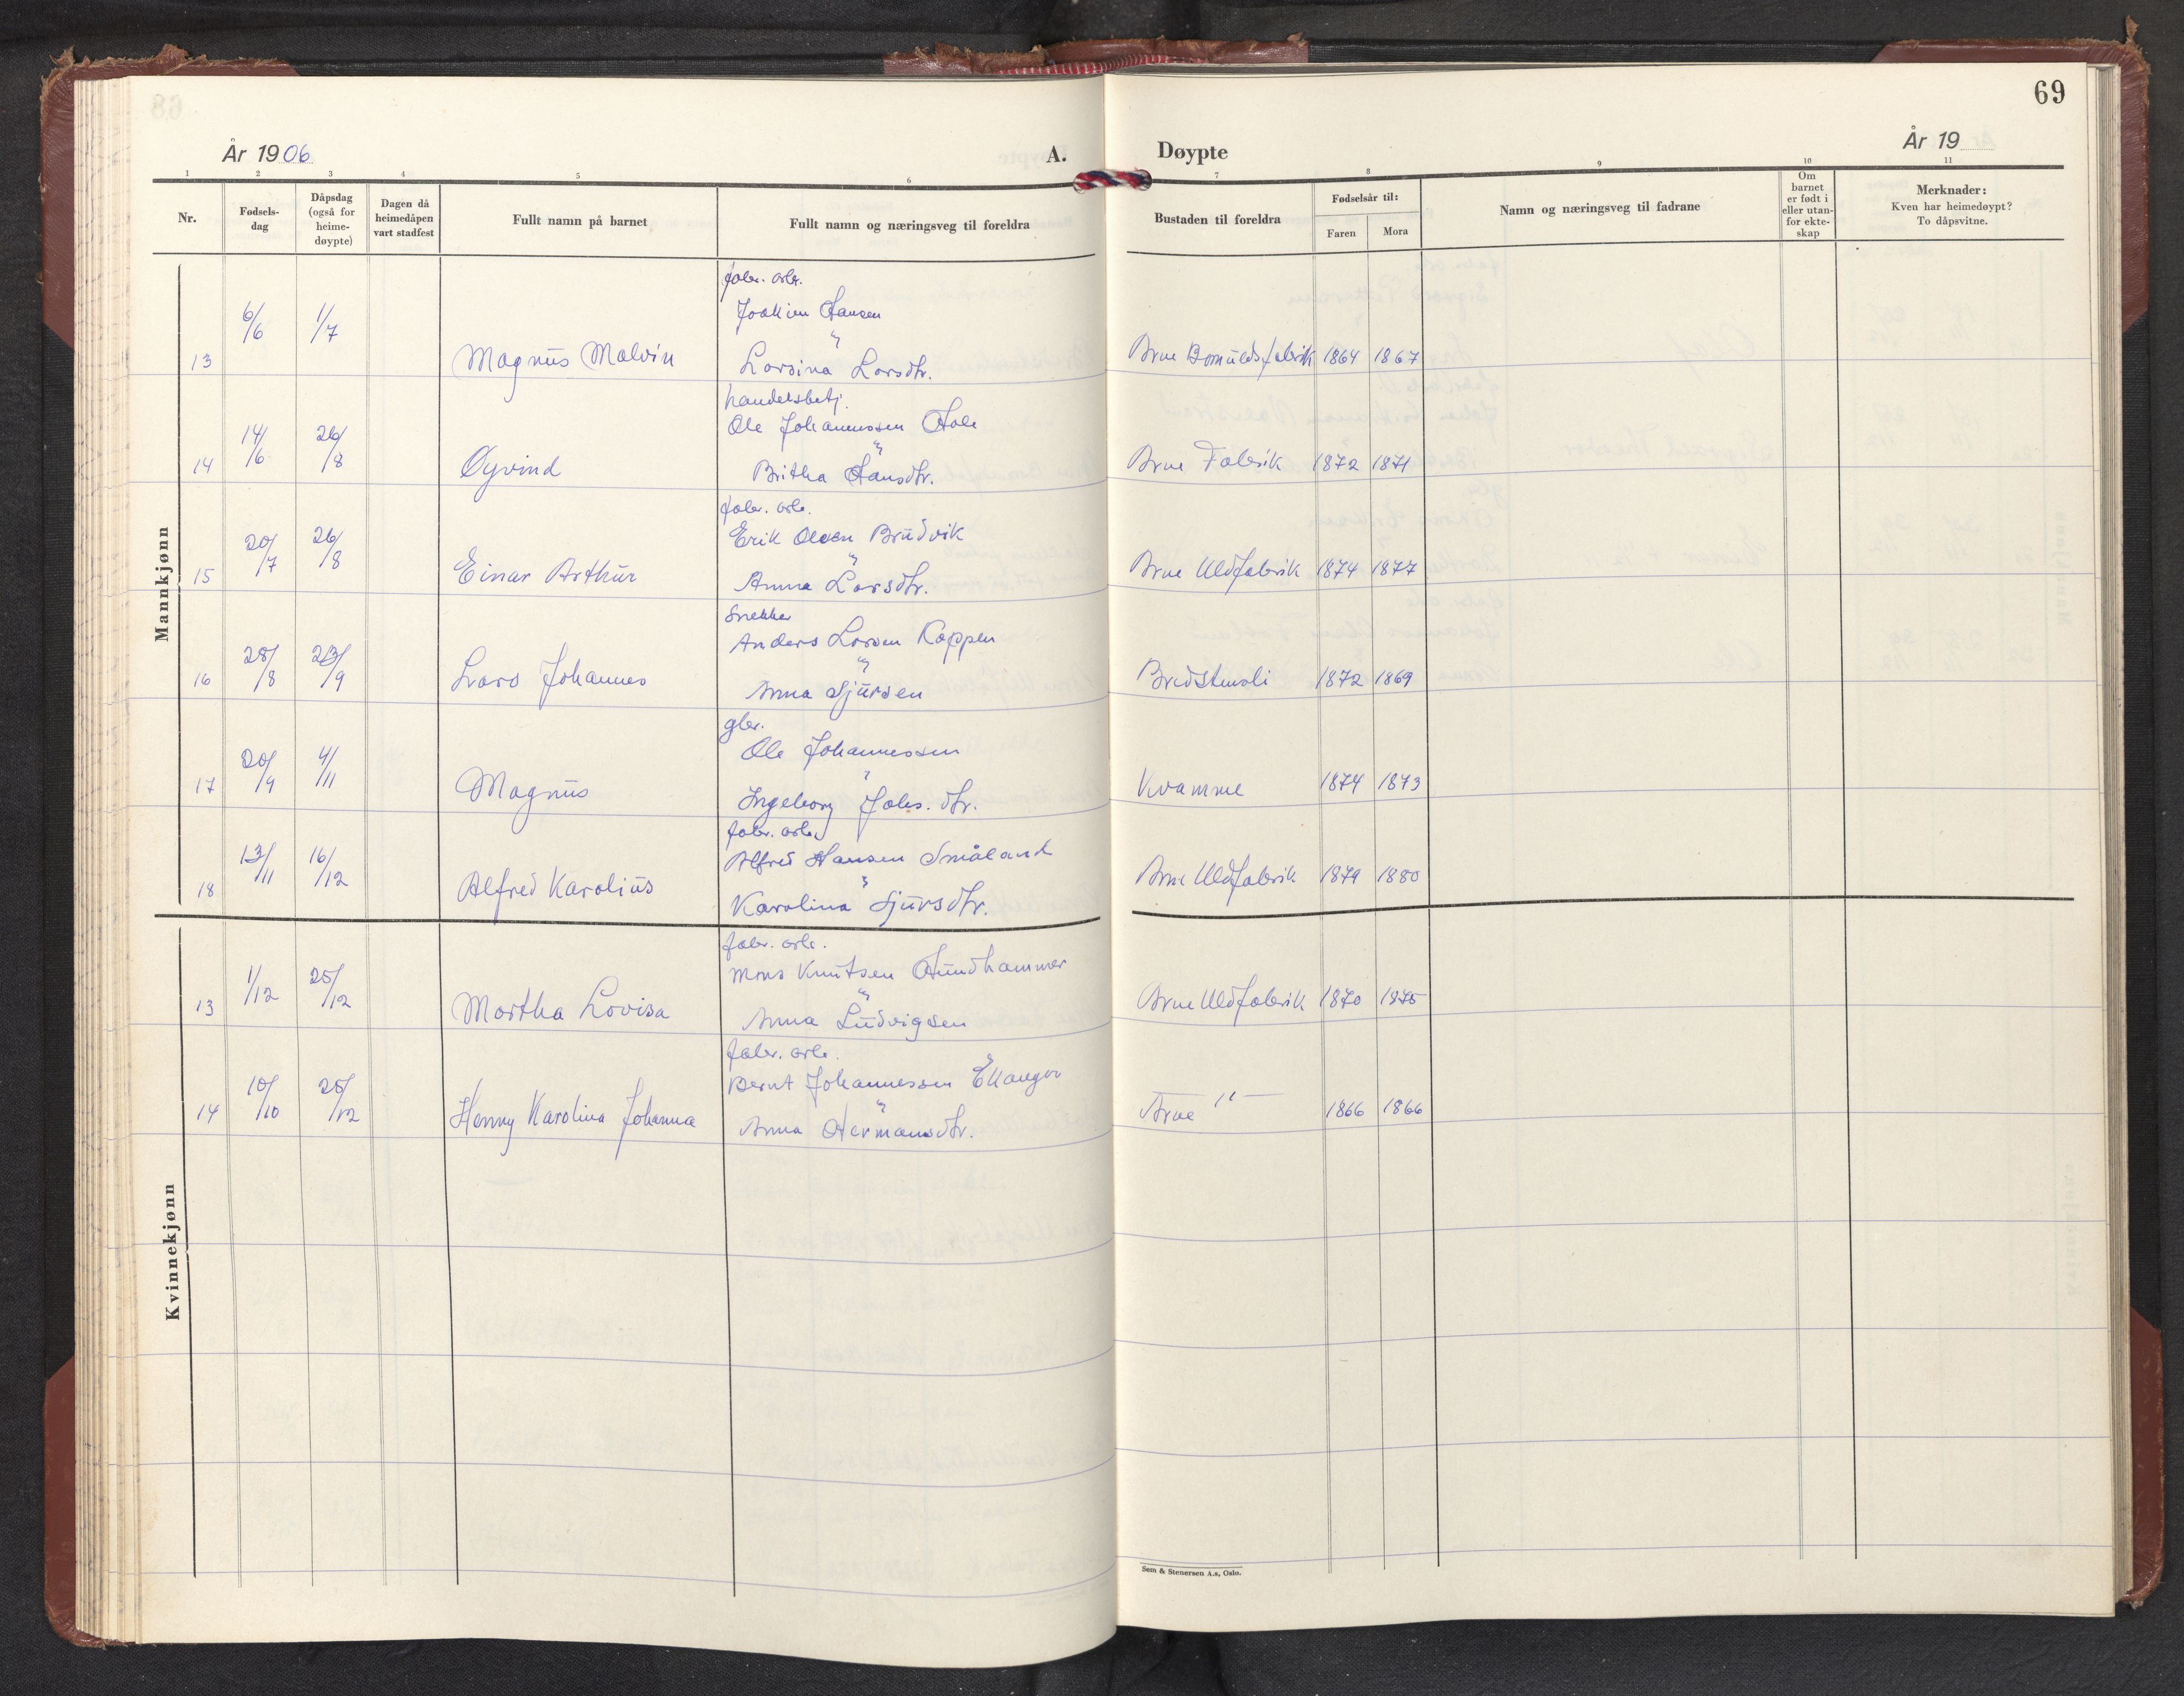 69
År 1906
A.
Døypte
År 19
1 2 3 4 5 6 7 8 9 10 11
Nr.
Fødsels-
dag
Dåpsdag
(også for
heime-
døypte)
Dagen då
heimedåpen
vart stadfest
Fullt namn på barnet
Fullt namn og næringsveg til foreldra
Bustaden til foreldra
Fødselsår til:
Faren Mora
Namn og næringsveg til fadrane
Om
barnet
er født i
eller utan-
for ekte-
skap
Merknader:
Kven har heimedøypt?
To dåpsvitne.
Mannkjønn
fabr. arb.
Joakim Hansen
"
13 6/6 1/7 Magnus Malvin Larsina Larsdtr. Arne Bomuldsfabrik 1864 1867
handelsbetj.
Ole Johannessen Hole
"
14 14/6 26/8 Øyvind Britha Hansdtr. Arne Fabrik 1872 1871
fabr. arb.
Erik Olsen Brudvik
"
15 20/7 26/8 Einar Arthur Anna Larsdtr. Arne Uldfabrik 1874 1877
Snekker
Anders Larsen Koppen
"
16 28/8 23/9 Lars Johannes Anna Sjursen Bredstensli 1872 1869
gbr.
Ole Johannessen
"
17 20/9 4/11 Magnus Ingeborg Johs. dtr. Kvamme 1874 1873
fabr. arb.
Alfred Hansen Småland
"
18 13/11 16/12 Alfred Karolius Karolina Sjursdtr. Arne Uldfabrik 1879 1880
Kvinnekjønn
fabr. arb.
Mons Knutsen Hundhammer
"
13 1/12 25/12 Martha Lovisa Anna Ludvigsen Arne Uldfabrik 1870 1875
fabr. arb.
Bernt Johannessen Ekanger
"
14 10/10 25/12 Henny Karolina Johanna Anna Hermansdtr. Arne —"— 1866 1866
Sem & Stenersen A.s, Oslo.